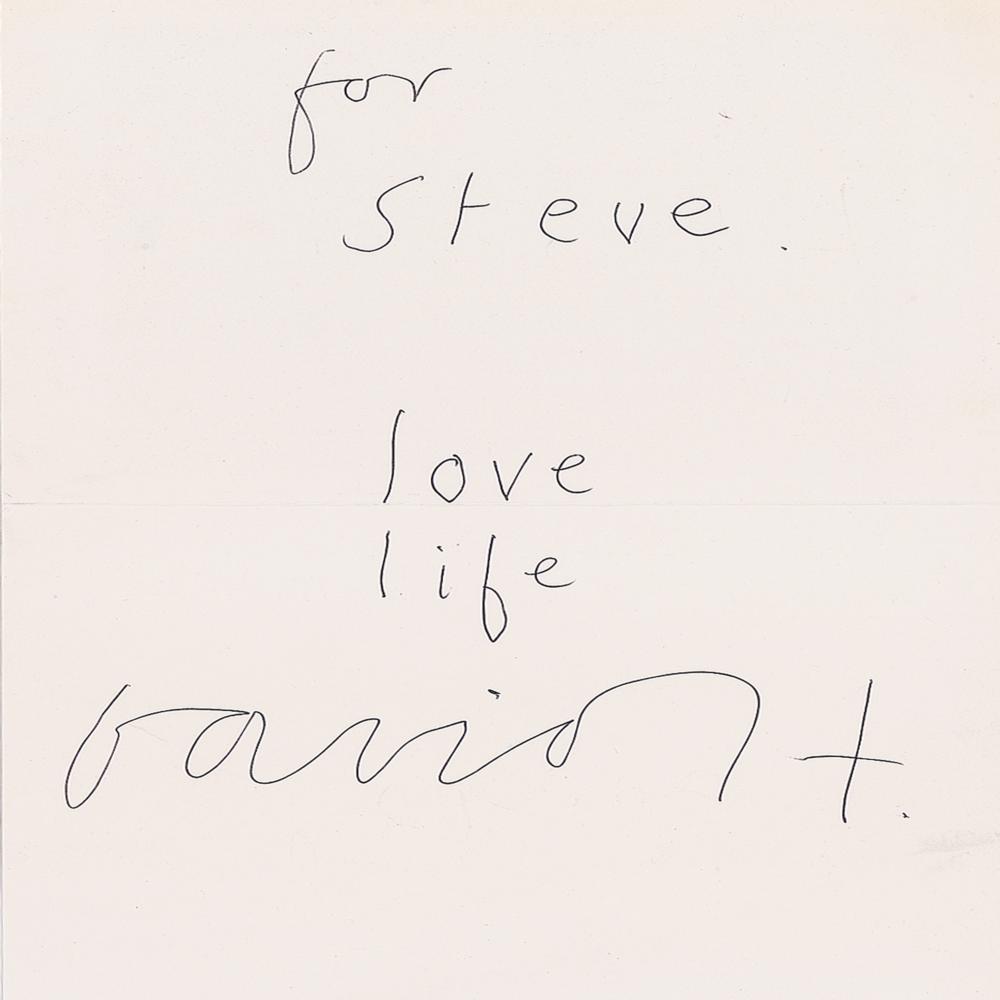 for
steve.
love
life
David H.